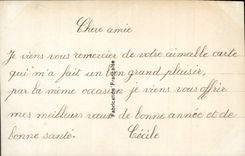 Chere amie
Je viens vous remercier de votre aimable carte
qui m'a fait un bien grand plaisir,
par la même occasion je viens vous offrir
mes meilleurs vœux de bonne année et de
bonne santé.
Cécile
Fabrication Française